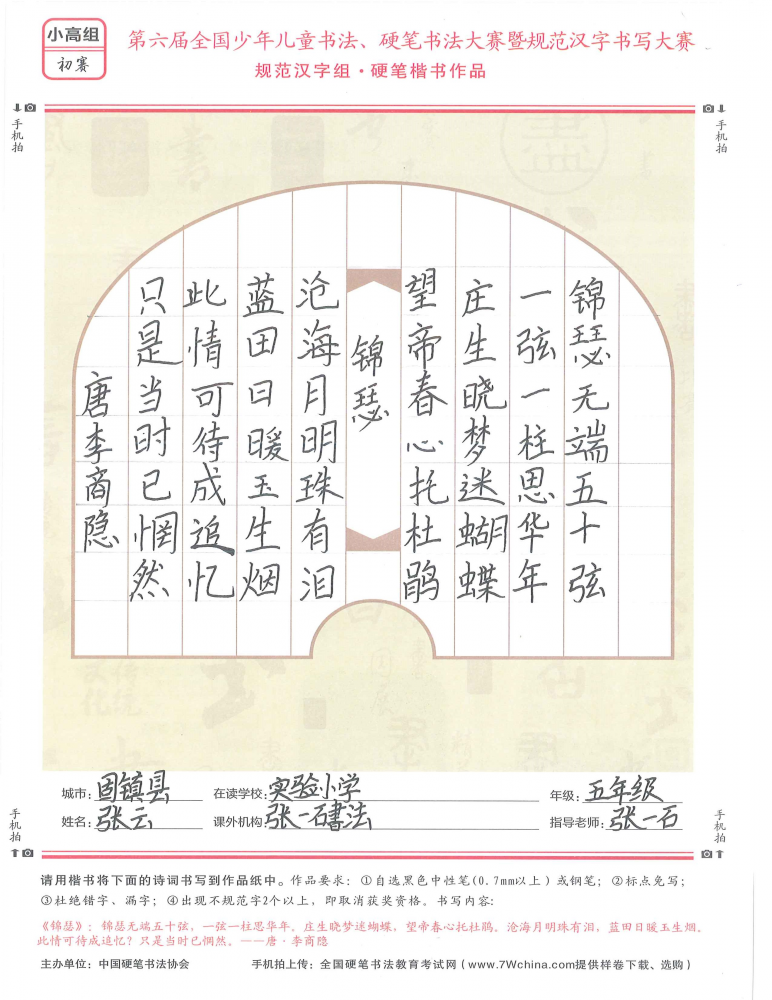 小高组
初赛
第六届全国少年儿童书法、硬笔书法大赛暨规范汉字书写大赛
规范汉字组·硬笔楷书作品
手机拍
手机拍
锦瑟无端五十弦
一弦一柱思华年
庄生晓梦迷蝴蝶
望帝春心托杜鹃
锦瑟
沧海月明珠有泪
蓝田日暖玉生烟
此情可待成追忆
只是当时已惘然
唐李商隐
城市：固镇县 在读学校：实验小学 年级：五年级
姓名：张云 课外机构：张一石书法 指导老师：张一石
手机拍
手机拍
请用楷书将下面的诗词书写到作品纸中。作品要求：①自选黑色中性笔(0.7mm以上)或钢笔；②标点免写；
③杜绝错字、漏字；④出现不规范字2个以上，即取消获奖资格。书写内容：
《锦瑟》：锦瑟无端五十弦，一弦一柱思华年。庄生晓梦迷蝴蝶，望帝春心托杜鹃。沧海月明珠有泪，蓝田日暖玉生烟。
此情可待成追忆？只是当时已惘然。——唐·李商隐
主办单位：中国硬笔书法协会 手机拍上传：全国硬笔书法教育考试网（www.7Wchina.com提供样卷下载、选购）